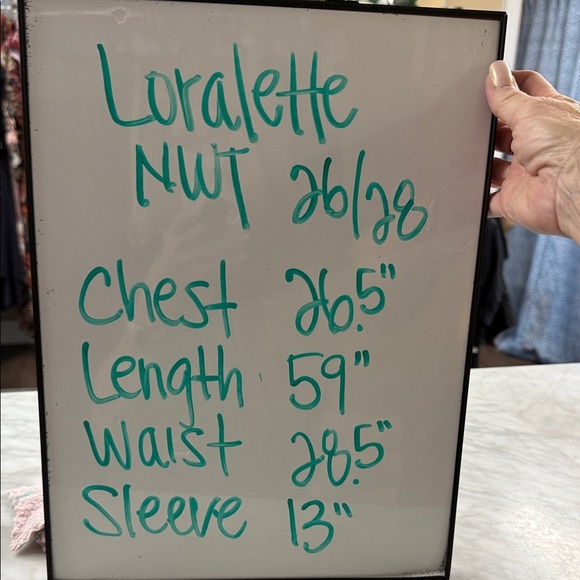 Loralette
NWT 26/28
Chest 26.5"
Length 59"
Waist 28.5"
Sleeve 13"